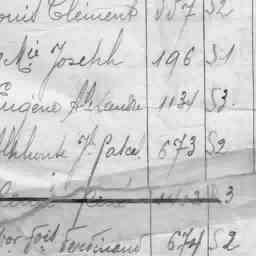 Louis Clément 557 S2
Mie Joseph 196 S1
Eugène Alexandre 1134 S3
Alphonse Jh 673 S2
René 3
Ferdinand 674 S2